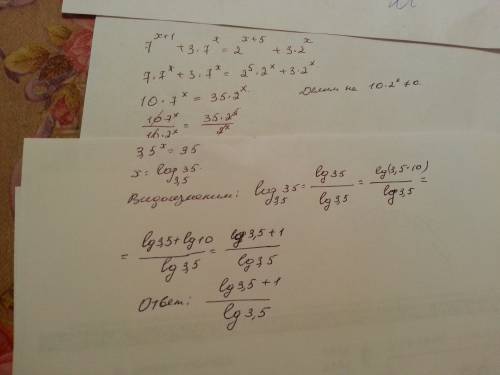 7^{x+1} + 3·7^x = 2^{x+5} + 3·2^x
7·7^x + 3·7^x = 2^5·2^x + 3·2^x
10·7^x = 35·2^x Делим на 10·2^x ≠ 0
\frac{10·7^x}{10·2^x} = \frac{35·2^x}{2^x}
3,5^x = 35
x = log_{3,5} 35
log_{3,5} 35 = \frac{lg 35}{lg 3,5} = \frac{lg(3,5·10)}{lg 3,5} =
= \frac{lg 3,5 + lg 10}{lg 3,5} = \frac{lg 3,5 + 1}{lg 3,5}
Ответ: \frac{lg 3,5 + 1}{lg 3,5}